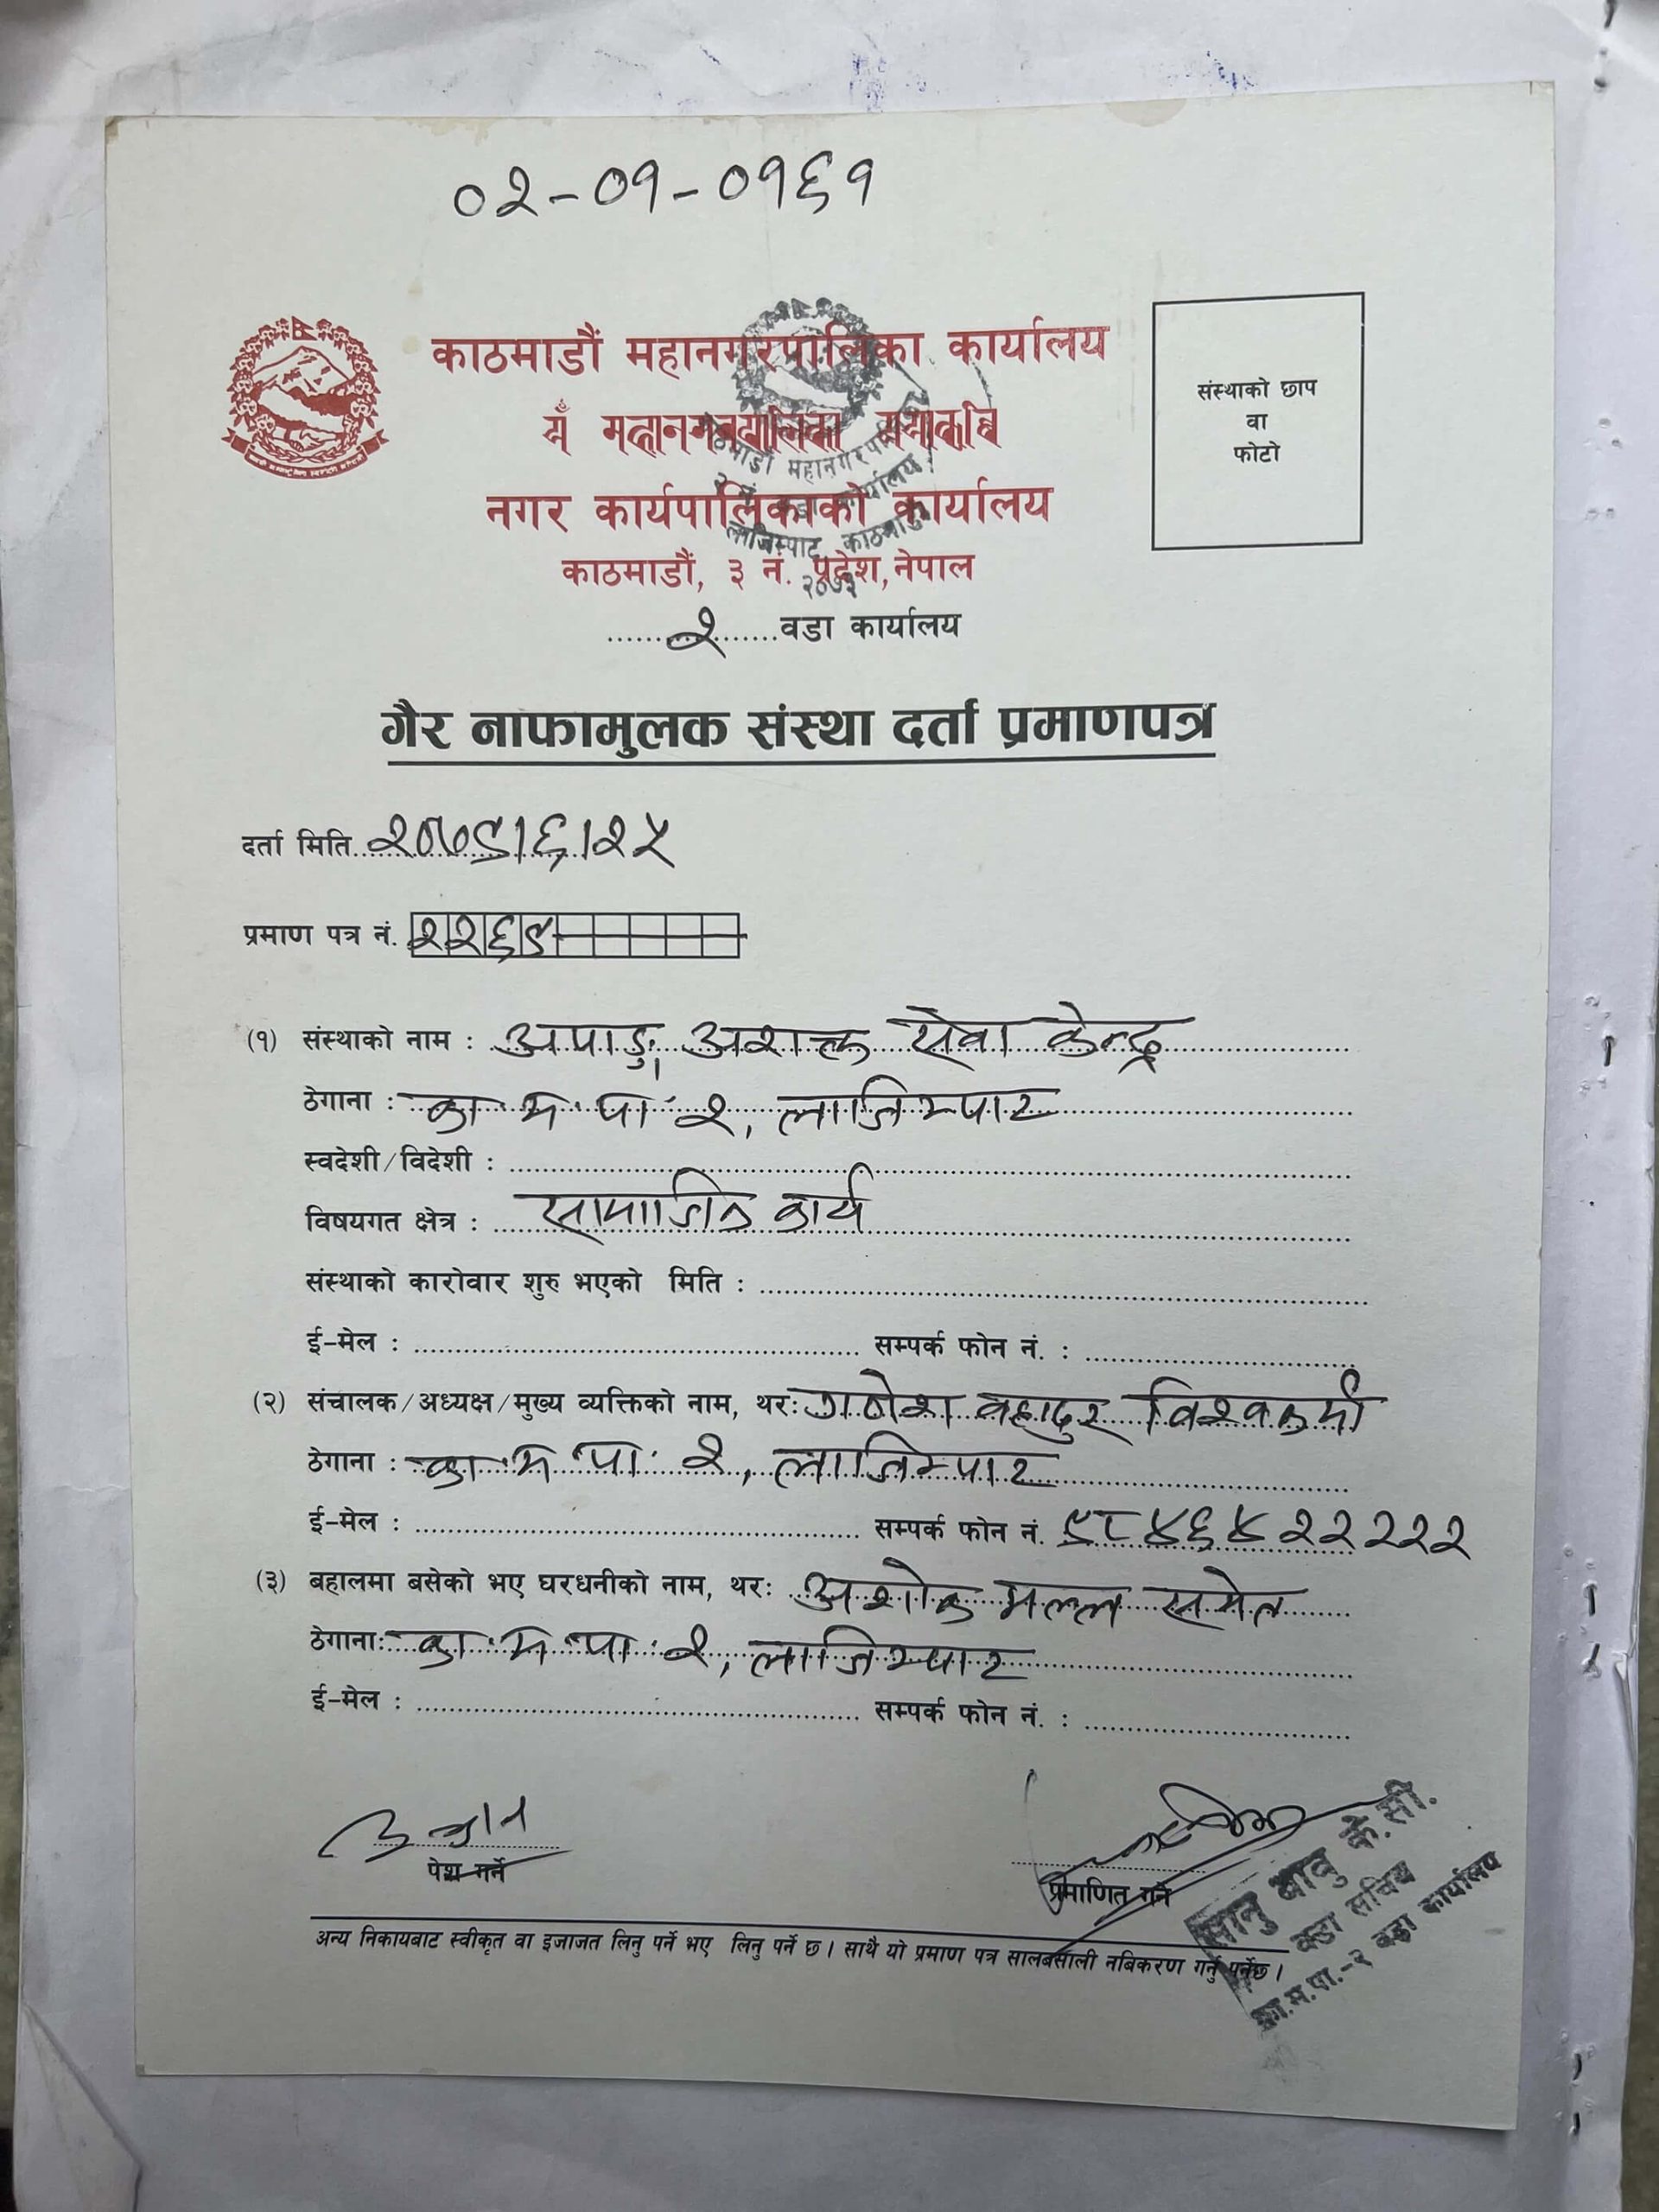 ०२-०१-०१६१
काठमाडौं महानगरपालिका कार्यालय
नगर कार्यपालिकाको कार्यालय
काठमाडौं, ३ नं. प्रदेश, नेपाल
२ वडा कार्यालय
संस्थाको छाप
वा
फोटो
काठमाडौं महानगरपालिका
२ नं. वडा कार्यालय
लाजिम्पाट, काठमाडौं
२०७३
गैर नाफामुलक संस्था दर्ता प्रमाणपत्र
दर्ता मिति २०७९।६।२५
प्रमाण पत्र नं. २२६९
(१) संस्थाको नाम : अपाङ्ग अशक्त सेवा केन्द्र
ठेगाना : का.म.पा. २, लाजिम्पाट
स्वदेशी/विदेशी :
विषयगत क्षेत्र : सामाजिक कार्य
संस्थाको कारोवार शुरु भएको मिति :
ई-मेल : सम्पर्क फोन नं. :
(२) संचालक/अध्यक्ष/मुख्य व्यक्तिको नाम, थरः गणेश बहादुर विश्वकर्मा
ठेगाना : का.म.पा. २, लाजिम्पाट
ई-मेल : सम्पर्क फोन नं. ९८४६४२२२२२
(३) बहालमा बसेको भए घरधनीको नाम, थरः अशोक मल्ल समेत
ठेगानाः का.म.पा. २, लाजिम्पाट
ई-मेल : सम्पर्क फोन नं. :
पेश गर्ने
प्रमाणित गर्ने
सानु बाबु के.सी.
वडा सचिव
का.म.पा.-२ वडा कार्यालय
अन्य निकायबाट स्वीकृत वा इजाजत लिनु पर्ने भए लिनु पर्ने छ। साथै यो प्रमाण पत्र सालबसाली नबिकरण गर्नु पर्नेछ।